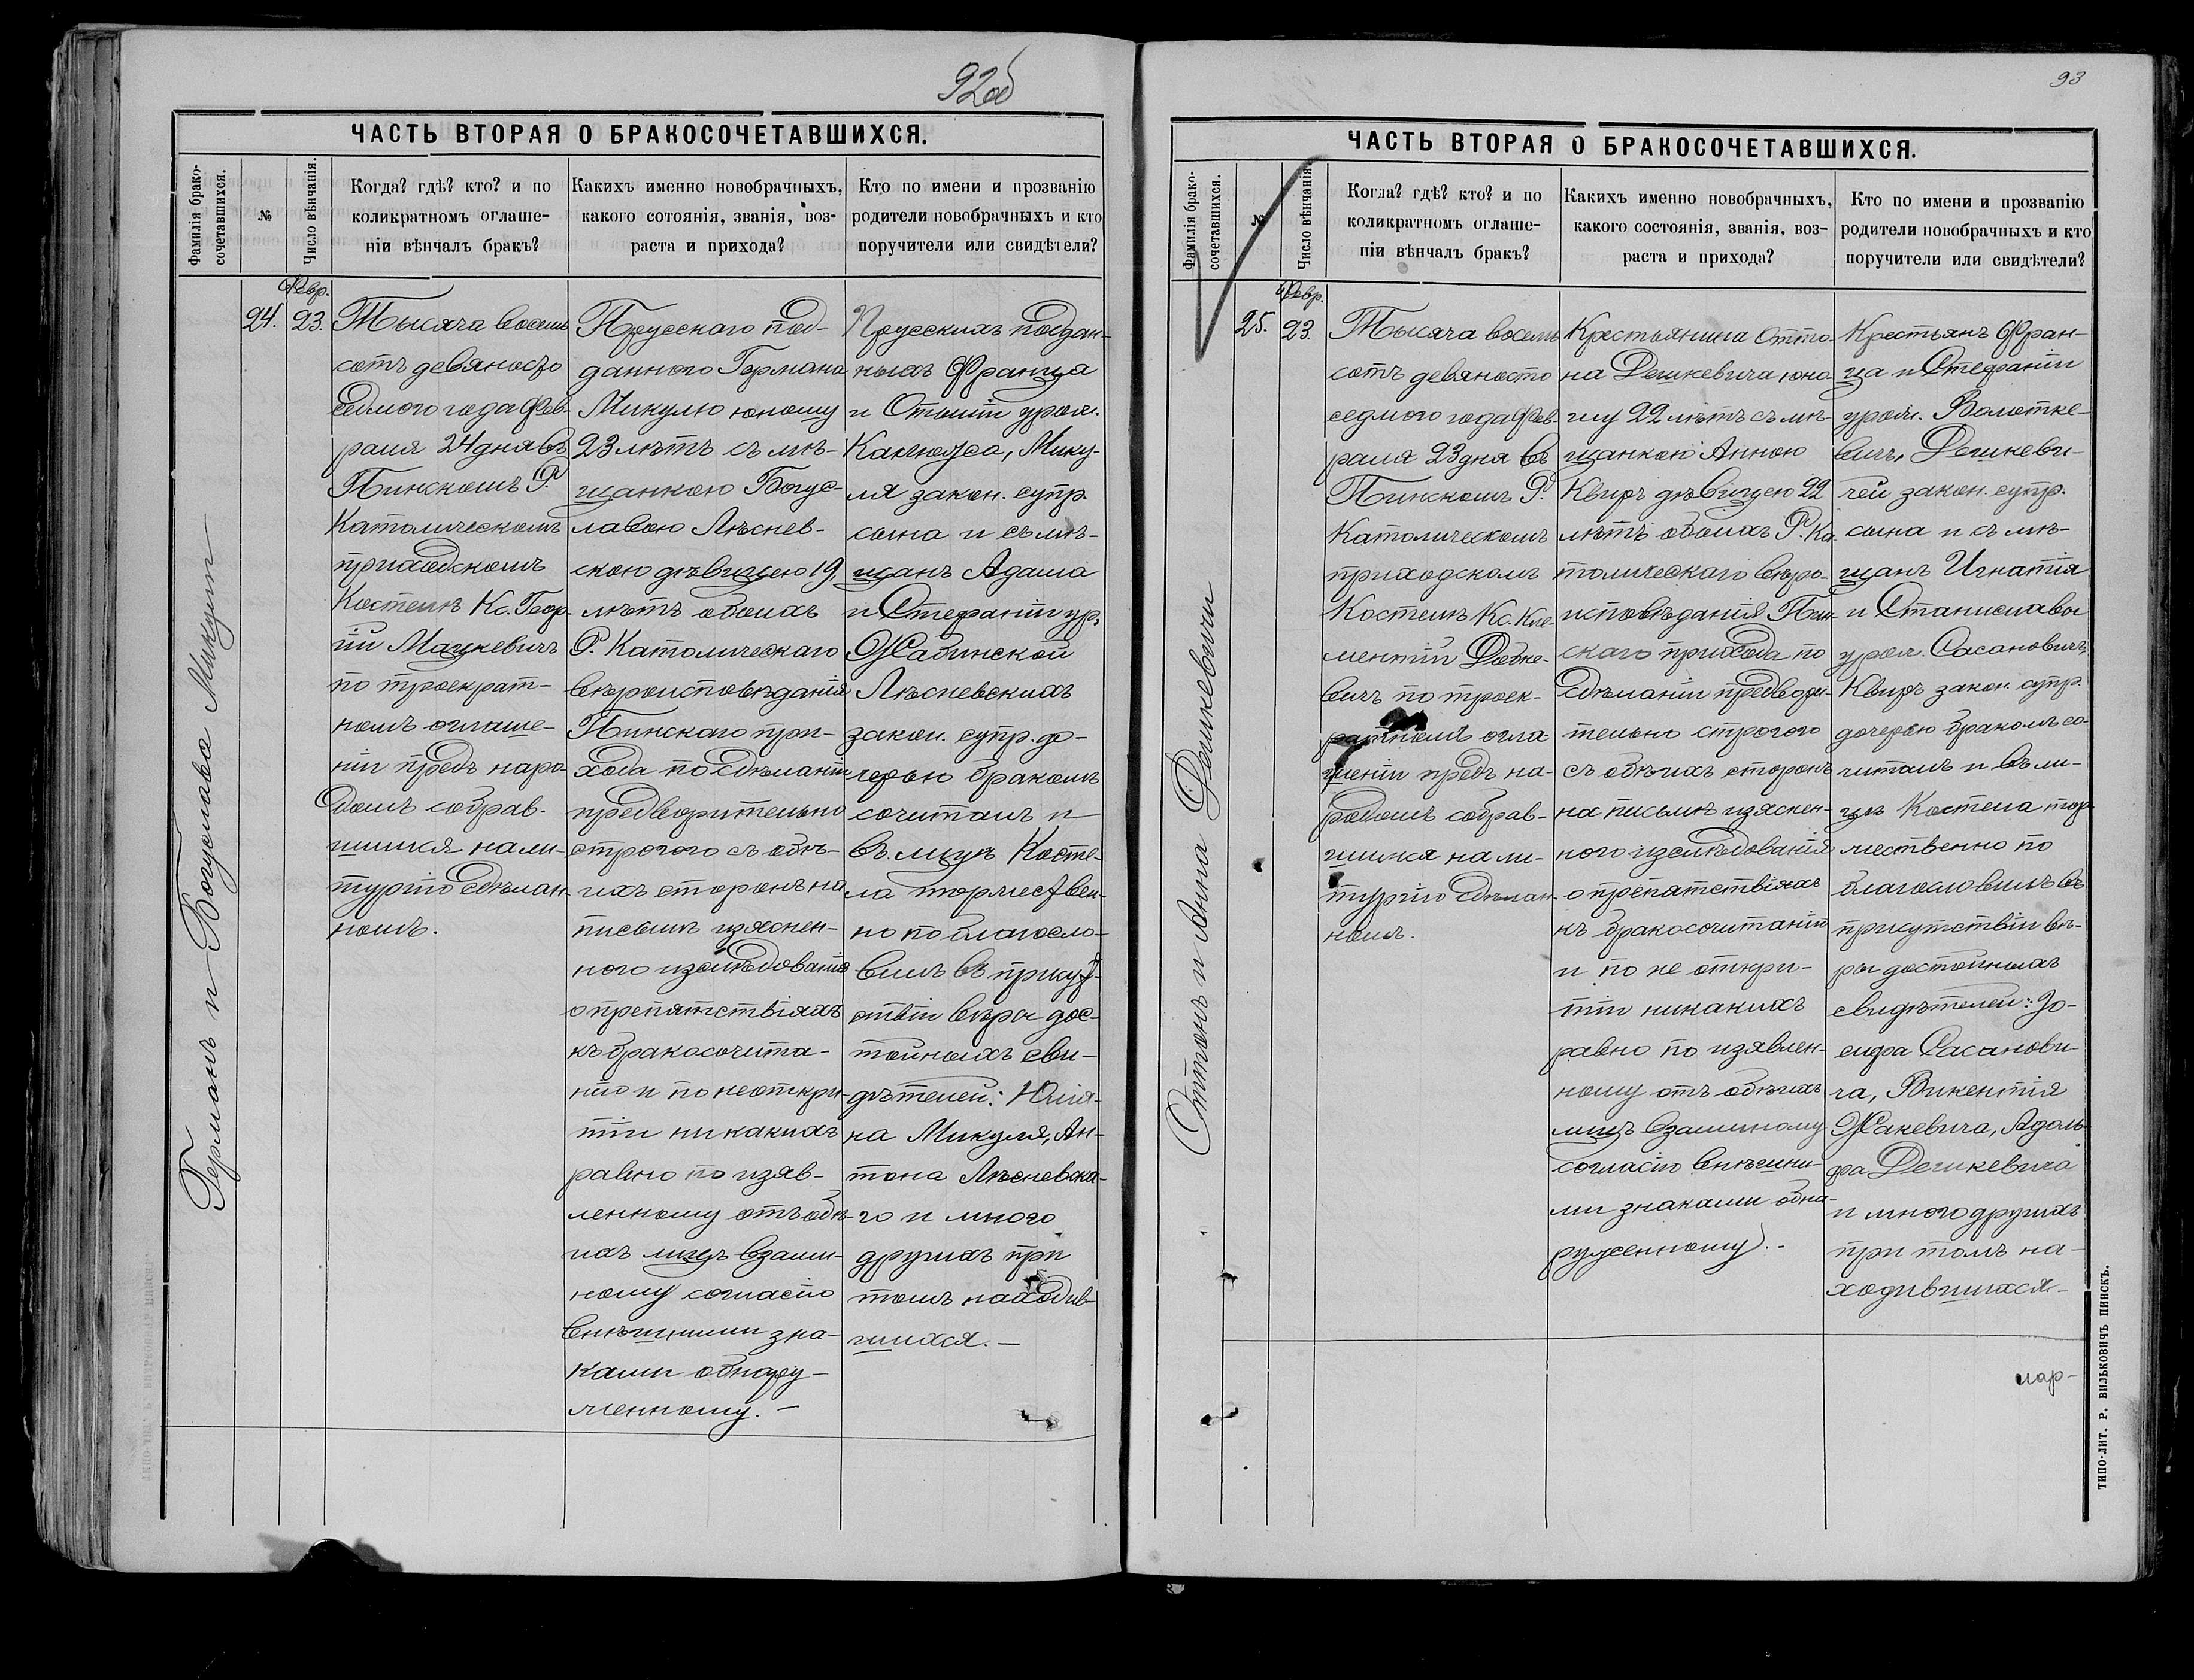 92об
ЧАСТЬ ВТОРАЯ О БРАКОСОЧЕТАВШИХСЯ.
Фамилія брако-
сочетавшихся.
№
Число вѣнчанія.
Когда? гдѣ? кто? и по
коликратномъ оглаше-
ніи вѣнчалъ бракъ?
Какихъ именно новобрачныхъ,
какого сотоянія, званія, воз-
раста и прихода?
Кто по имени и прозванію
родители новобрачныхъ и кто
поручители или свидѣтели?
Германъ и Богуслава Микули
24.
Февр.
23.
Тысяча восемь
сотъ девяносто
седмого года Фев-
раля 24 дня въ
Пинскомъ Р.
Католическомъ
приходскомъ
Костелѣ Кс. Геор-
гій Мацкевичъ
по троекрат-
номъ оглаше-
ніи предъ наро-
домъ собрав-
шимся на ли-
тургію сдѣлан-
номъ.
Прусского под-
данного Германа
Микулю юношу
23 лѣтъ съ мѣ-
щанкою Богус-
лавою Лѣснев-
скою дѣвицею 19.
лѣтъ обоихъ
Р. Католического
вѣроисповѣданія
Пинского при-
хода по сдѣланіи
предворительно
строгого съ обѣ-
ихъ сторонъ на
письмѣ изяснен-
ного изслѣдованія
о препятствіяхъ
къ бракосочита-
нію и по неоткри-
тіи никакихъ
равно по изяв-
ленному отъ обѣ-
ихъ лицъ взаим-
ному согласію
внѣшними зна-
ками обнару-
женному. -
Прусскихъ поддан-
ныхъ Франца
и Отыліи урож.
Микуля закон. супр.
сына и съ мѣ-
щанъ Адама
и Стефаніи ур.
Жабинской
Лѣсневскихъ
закон. супр. до-
черью бракомъ
сочиталъ и
въ лицѣ Косте-
ла торжествен-
но по благосло-
вилъ въ присут-
ствіи вѣры дос-
тойныхъ сви-
дѣтелей: Юлія-
на Микуля, Ан-
тона Лѣсневска-
го и много
другихъ при
томъ находив-
шихся. -
93
ЧАСТЬ ВТОРАЯ О БРАКОСОЧЕТАВШИХСЯ.
Фамилія брако-
сочетавшихся.
№
Число вѣнчанія.
Когда? гдѣ? кто? и по
коликратномъ оглаше-
ніи вѣнчалъ бракъ?
Какихъ именно новобрачныхъ,
какого состоянія, званія, воз-
раста и прихода?
Кто по имени и прозванію
родители новобрачныхъ и кто
поручители или свидѣтели?
Оттонъ и Анна Дешкевичи
25.
Февр.
23.
Тысяча восемь
сотъ девяносто
седмого года Фев-
раля 23 дня въ
Пинскомъ Р.
Католическомъ
приходскомъ
Костелѣ Кс. Кле-
ментій Добке-
вичъ по троек-
ратномъ огла
шеніи предъ на-
родомъ собрав-
шимся на ли-
тургію сдѣлан-
номъ.
Крестьянина Отто-
на Дешкевича юно-
шу 22 лѣтъ съ мѣ-
щанкою Анною
Квиръ дѣвицею 22
лѣтъ обоихъ Р. Ка-
толическаго вѣро-
исповѣданія Пин-
скаго прихода по
сдѣланіи предвори-
тельно строгого
съ обѣихъ сторонъ
на письмѣ изяснен-
ного изслѣдованія
о препятствіяхъ
къ бракосочитанію
и по не откри-
тіи никакихъ
равно по изявлен-
ному отъ обѣихъ
лицъ взаимному
согласію внѣшни-
ми знаками обна-
руженному. -
Крестьянъ Фран-
ца и Стефаніи
урож. Волотке-
вичъ, Дешкеви-
чей закон. супр.
сына и съ мѣ-
щанъ Игнатія
и Станиславы
урож. Сасановичъ,
Квиръ закон. супр.
дочерью бракомъ со-
читалъ и въ ли-
цѣ Костела тор-
жественно по
благословилъ въ
присутствіи вѣ-
ры достойныхъ
свидѣтелей: Іо-
сифа Сасанови-
ча, Викентія
Жакевича, Адоль-
фа Дешкевича
и много другихъ
при томъ на-
ходившихся. -
мар-
ТИПО-ЛИТ. Р. ВИЛЬКОВИЧЪ ПИНСКЪ.